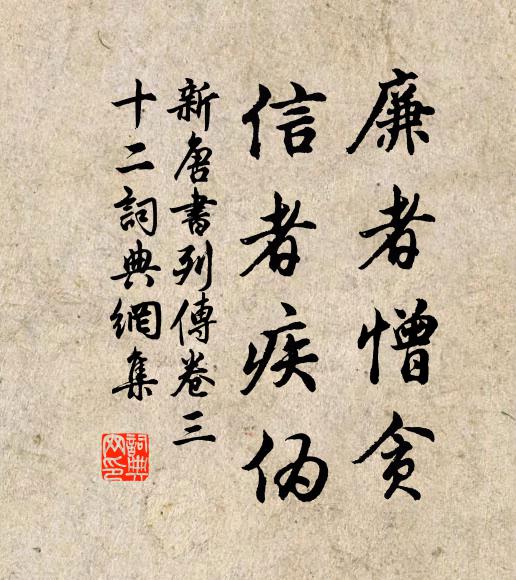 廉者憎贪
信者疾伪
新唐書列傳卷三
十二詞典網集
詞典
网印